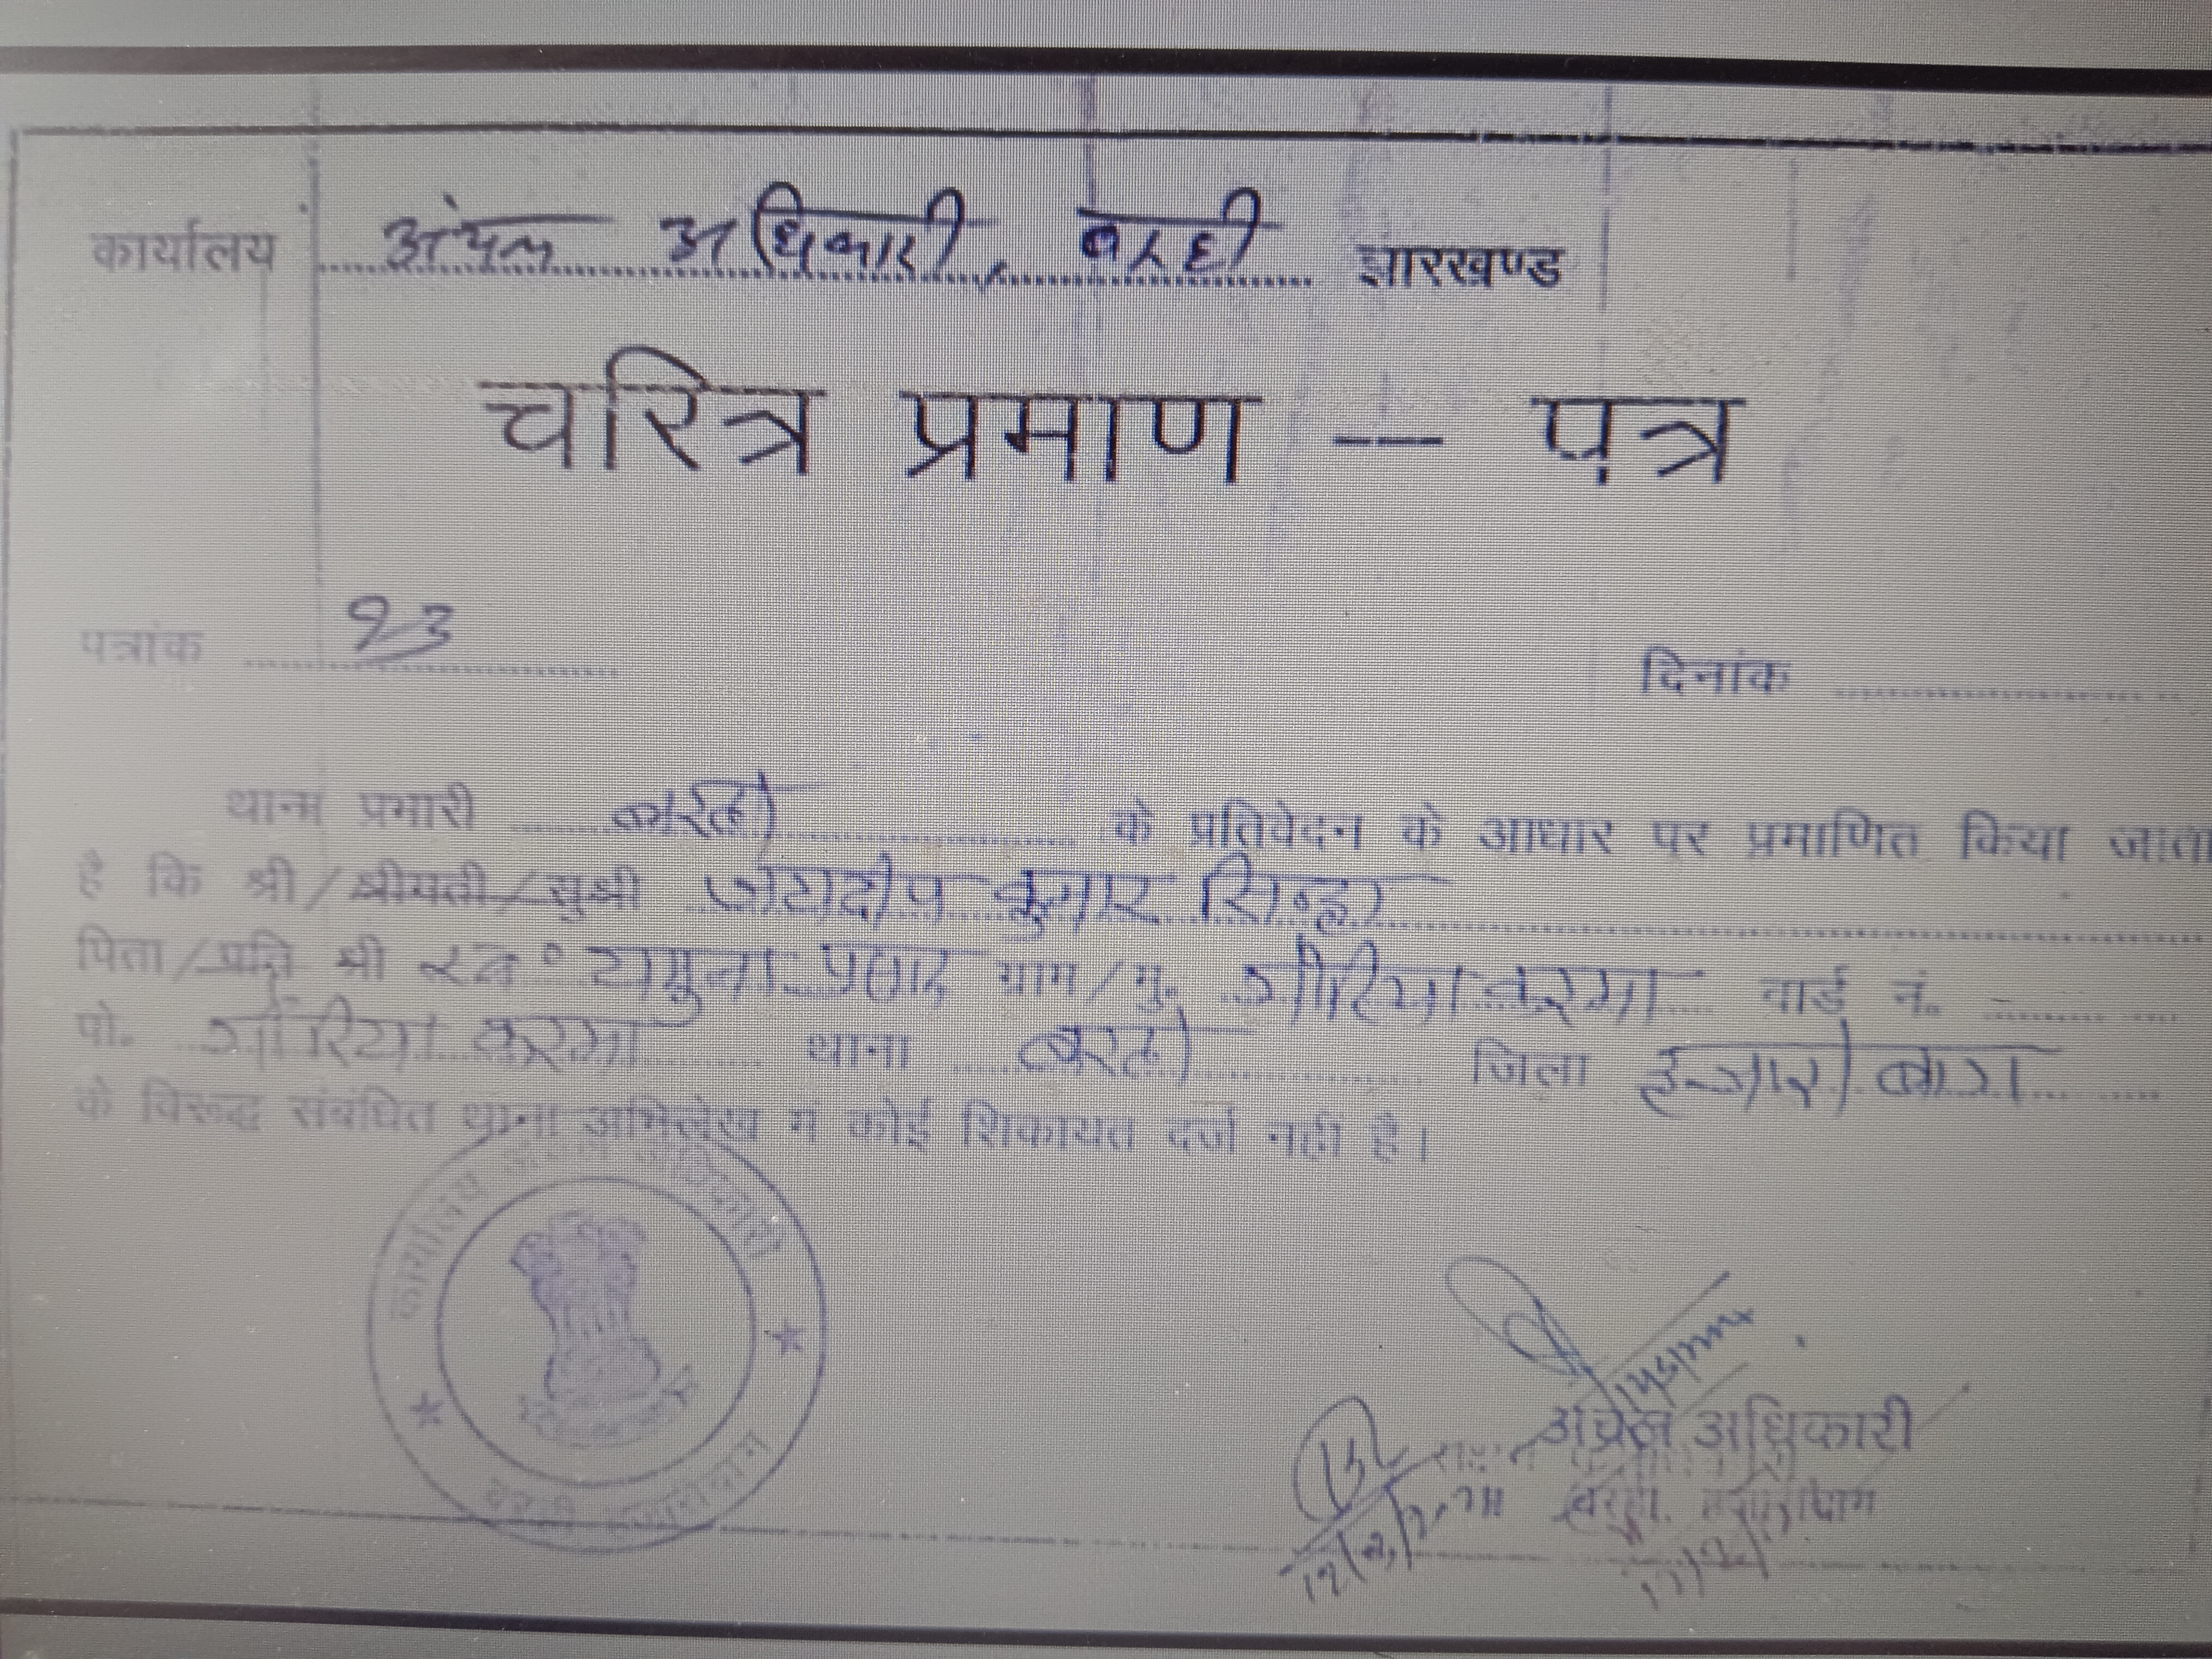 कार्यालय अंचल अधिकारी, बरही झारखण्ड
चरित्र प्रमाण -- पत्र
पत्रांक 23 दिनांक
थाना प्रभारी बरही के प्रतिवेदन के आधार पर प्रमाणित किया जाता
है कि श्री/श्रीमती/सुश्री जयदीप कुमार सिन्हा
पिता/प्रति श्री स्व० यमुना प्रसाद ग्राम/मु. गौरिया करमा वार्ड नं.
पो. गौरिया करमा थाना बरही जिला हजारीबाग
के विरूद्ध संबंधित थाना अभिलेख में कोई शिकायत दर्ज नहीं है।
कार्यालय अंचल अधिकारी
बरही हजारीबाग
अंचल अधिकारी
बरही, हजारीबाग